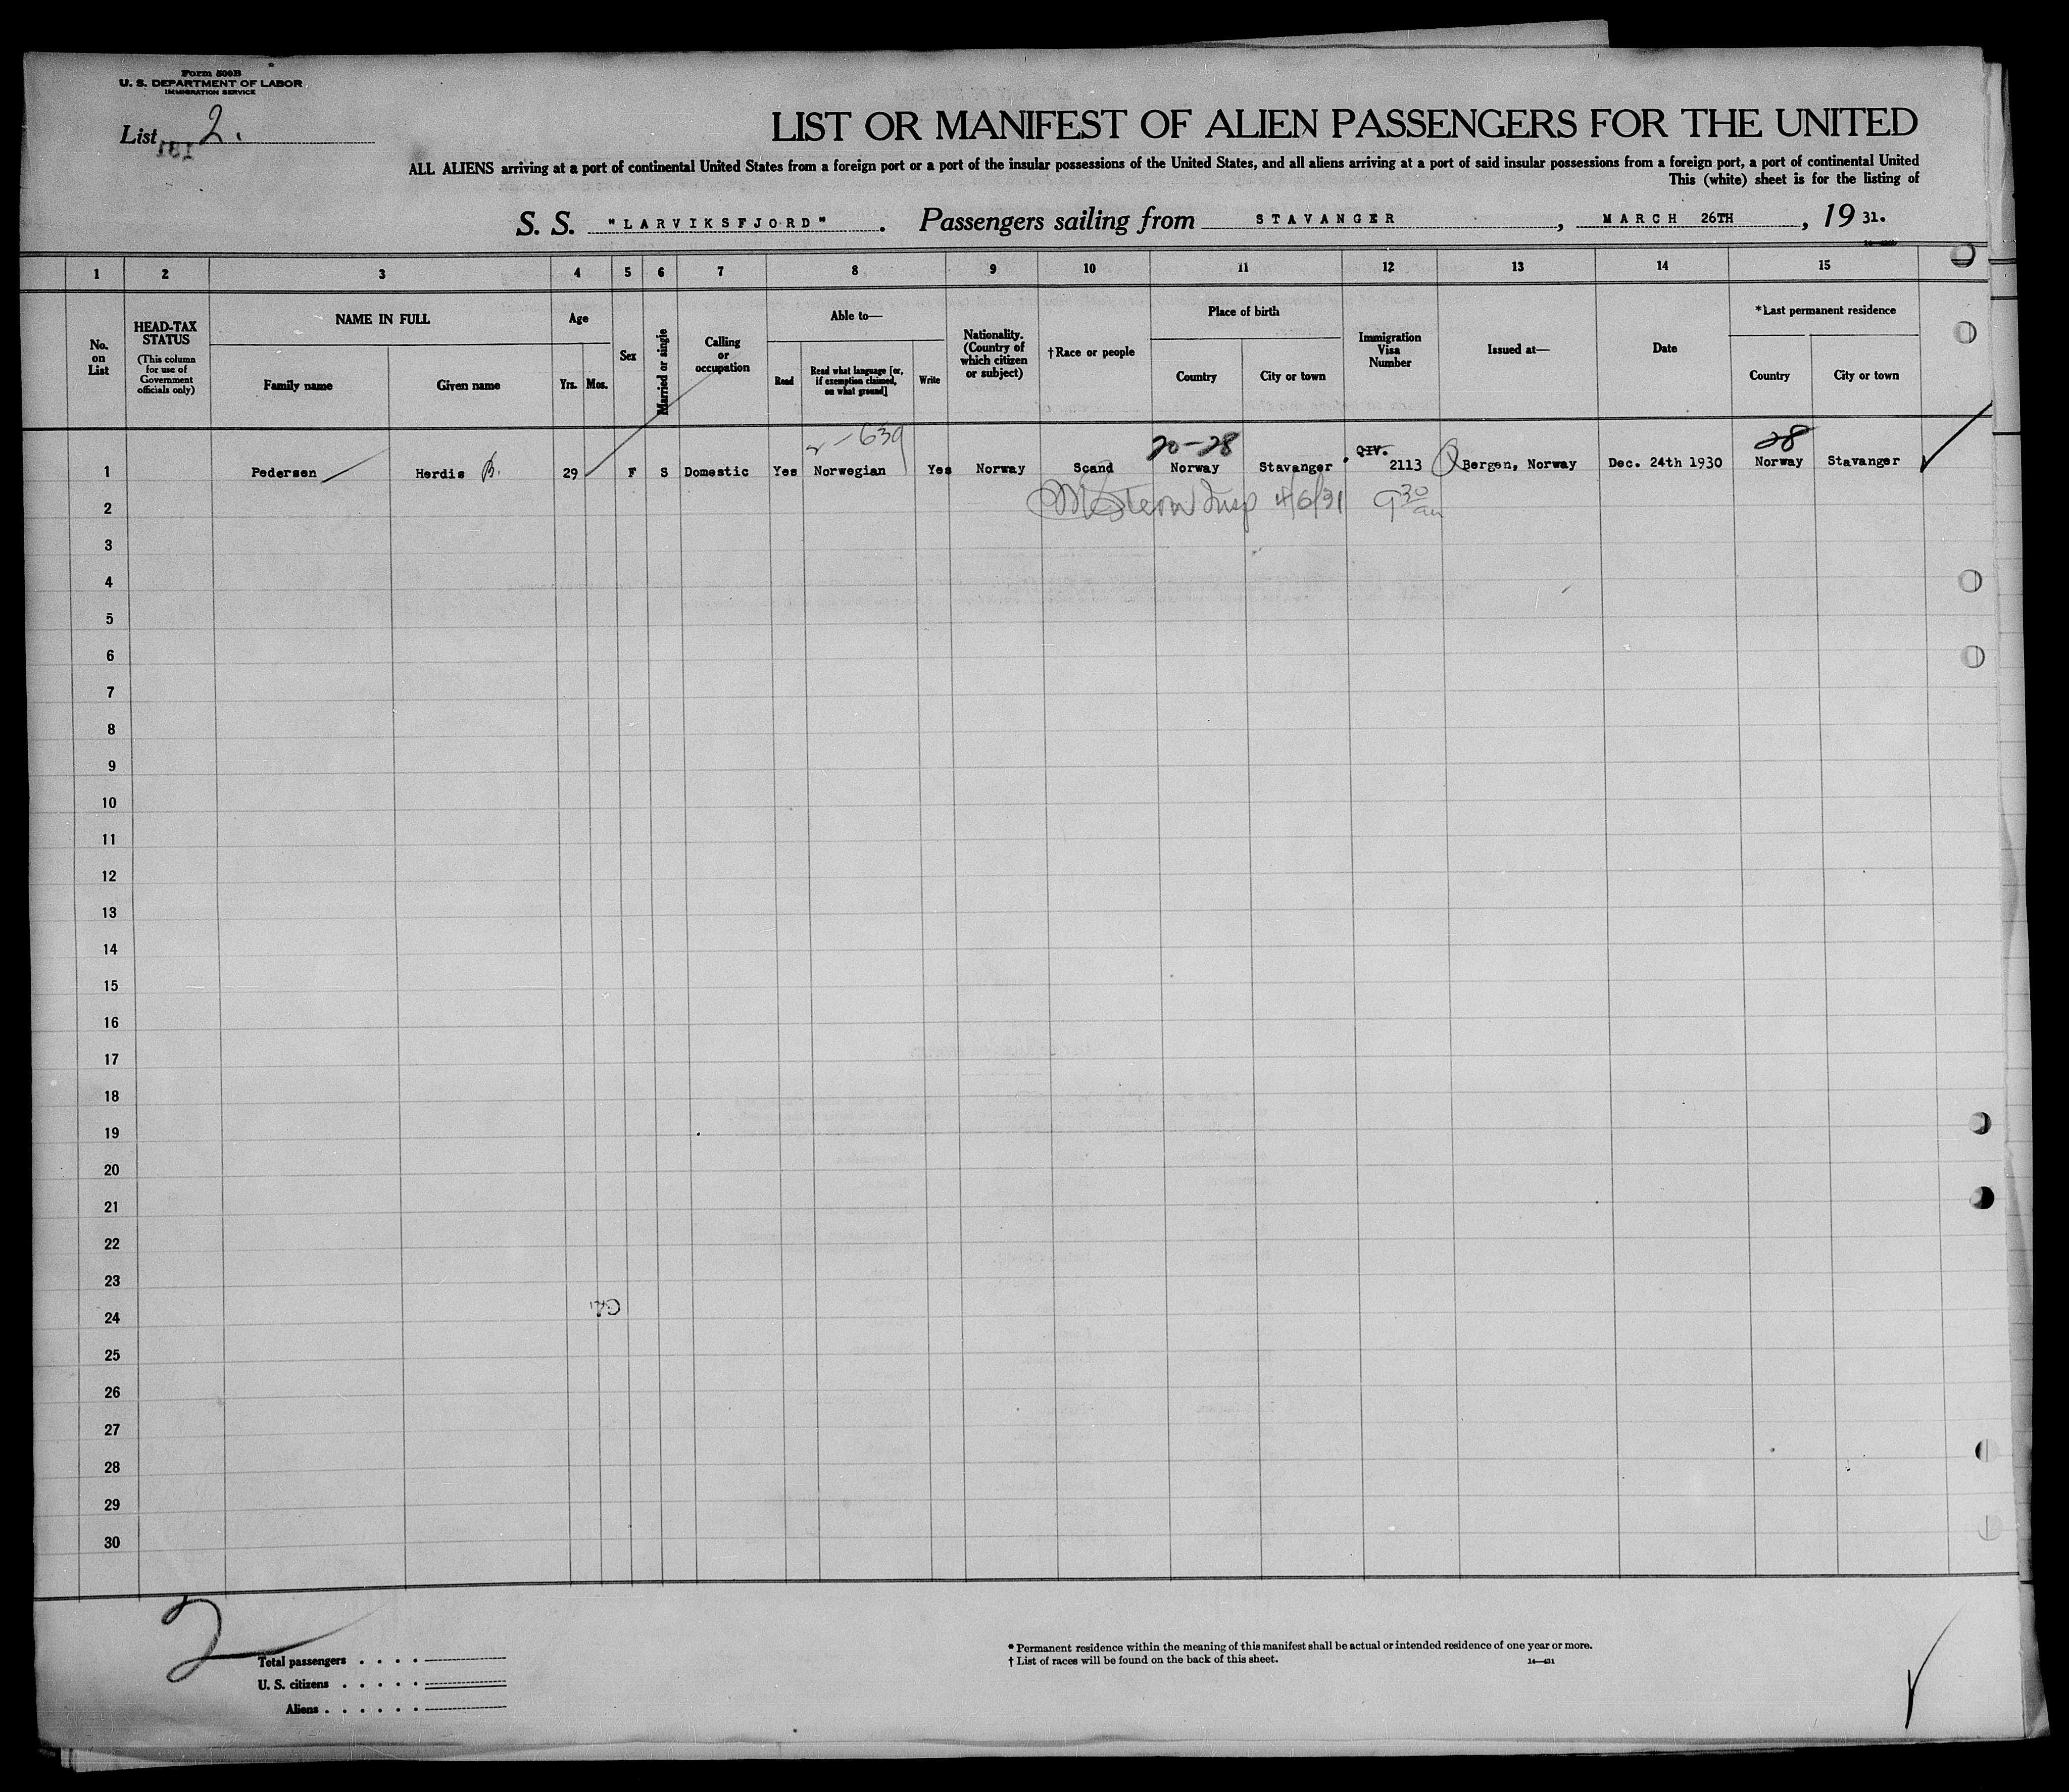 Form 500B
U. S. DEPARTMENT OF LABOR
IMMIGRATION SERVICE
List 2.
181
LIST OR MANIFEST OF ALIEN PASSENGERS FOR THE UNITED
ALL ALIENS arriving at a port of continental United States from a foreign port or a port of the insular possessions of the United States, and all aliens arriving at a port of said insular possessions from a foreign port, a port of continental United
This (white) sheet is for the listing of
S. S. "LARVIKSFJORD". Passengers sailing from STAVANGER, MARCH 26TH, 19 31.
1 2 3 4 5 6 7 8 9 10 11 12 13 14 15
No. on List
HEAD-TAX STATUS
(This column for use of Government officials only)
NAME IN FULL
Family name Given name
Age
Yrs. Mos.
Sex
Married or single
Calling or occupation
Able to—
Read
Read what language [or, if exemption claimed, on what ground]
Write
Nationality. (Country of which citizen or subject)
†Race or people
Place of birth
Country City or town
Immigration Visa Number
Issued at—
Date
*Last permanent residence
Country City or town
2-639 20-28 QIV. 28
1 Pedersen Herdis B. 29 F S Domestic Yes Norwegian Yes Norway Scand Norway Stavanger 2113 Bergen, Norway Dec. 24th 1930 Norway Stavanger
2 Insp 4/6/31 9 30 am
3
4
5
6
7
8
9
10
11
12
13
14
15
16
17
18
19
20
21
22
23
24
25
26
27
28
29
30
2
Total passengers
U. S. citizens
Aliens
* Permanent residence within the meaning of this manifest shall be actual or intended residence of one year or more.
† List of races will be found on the back of this sheet.
14—431